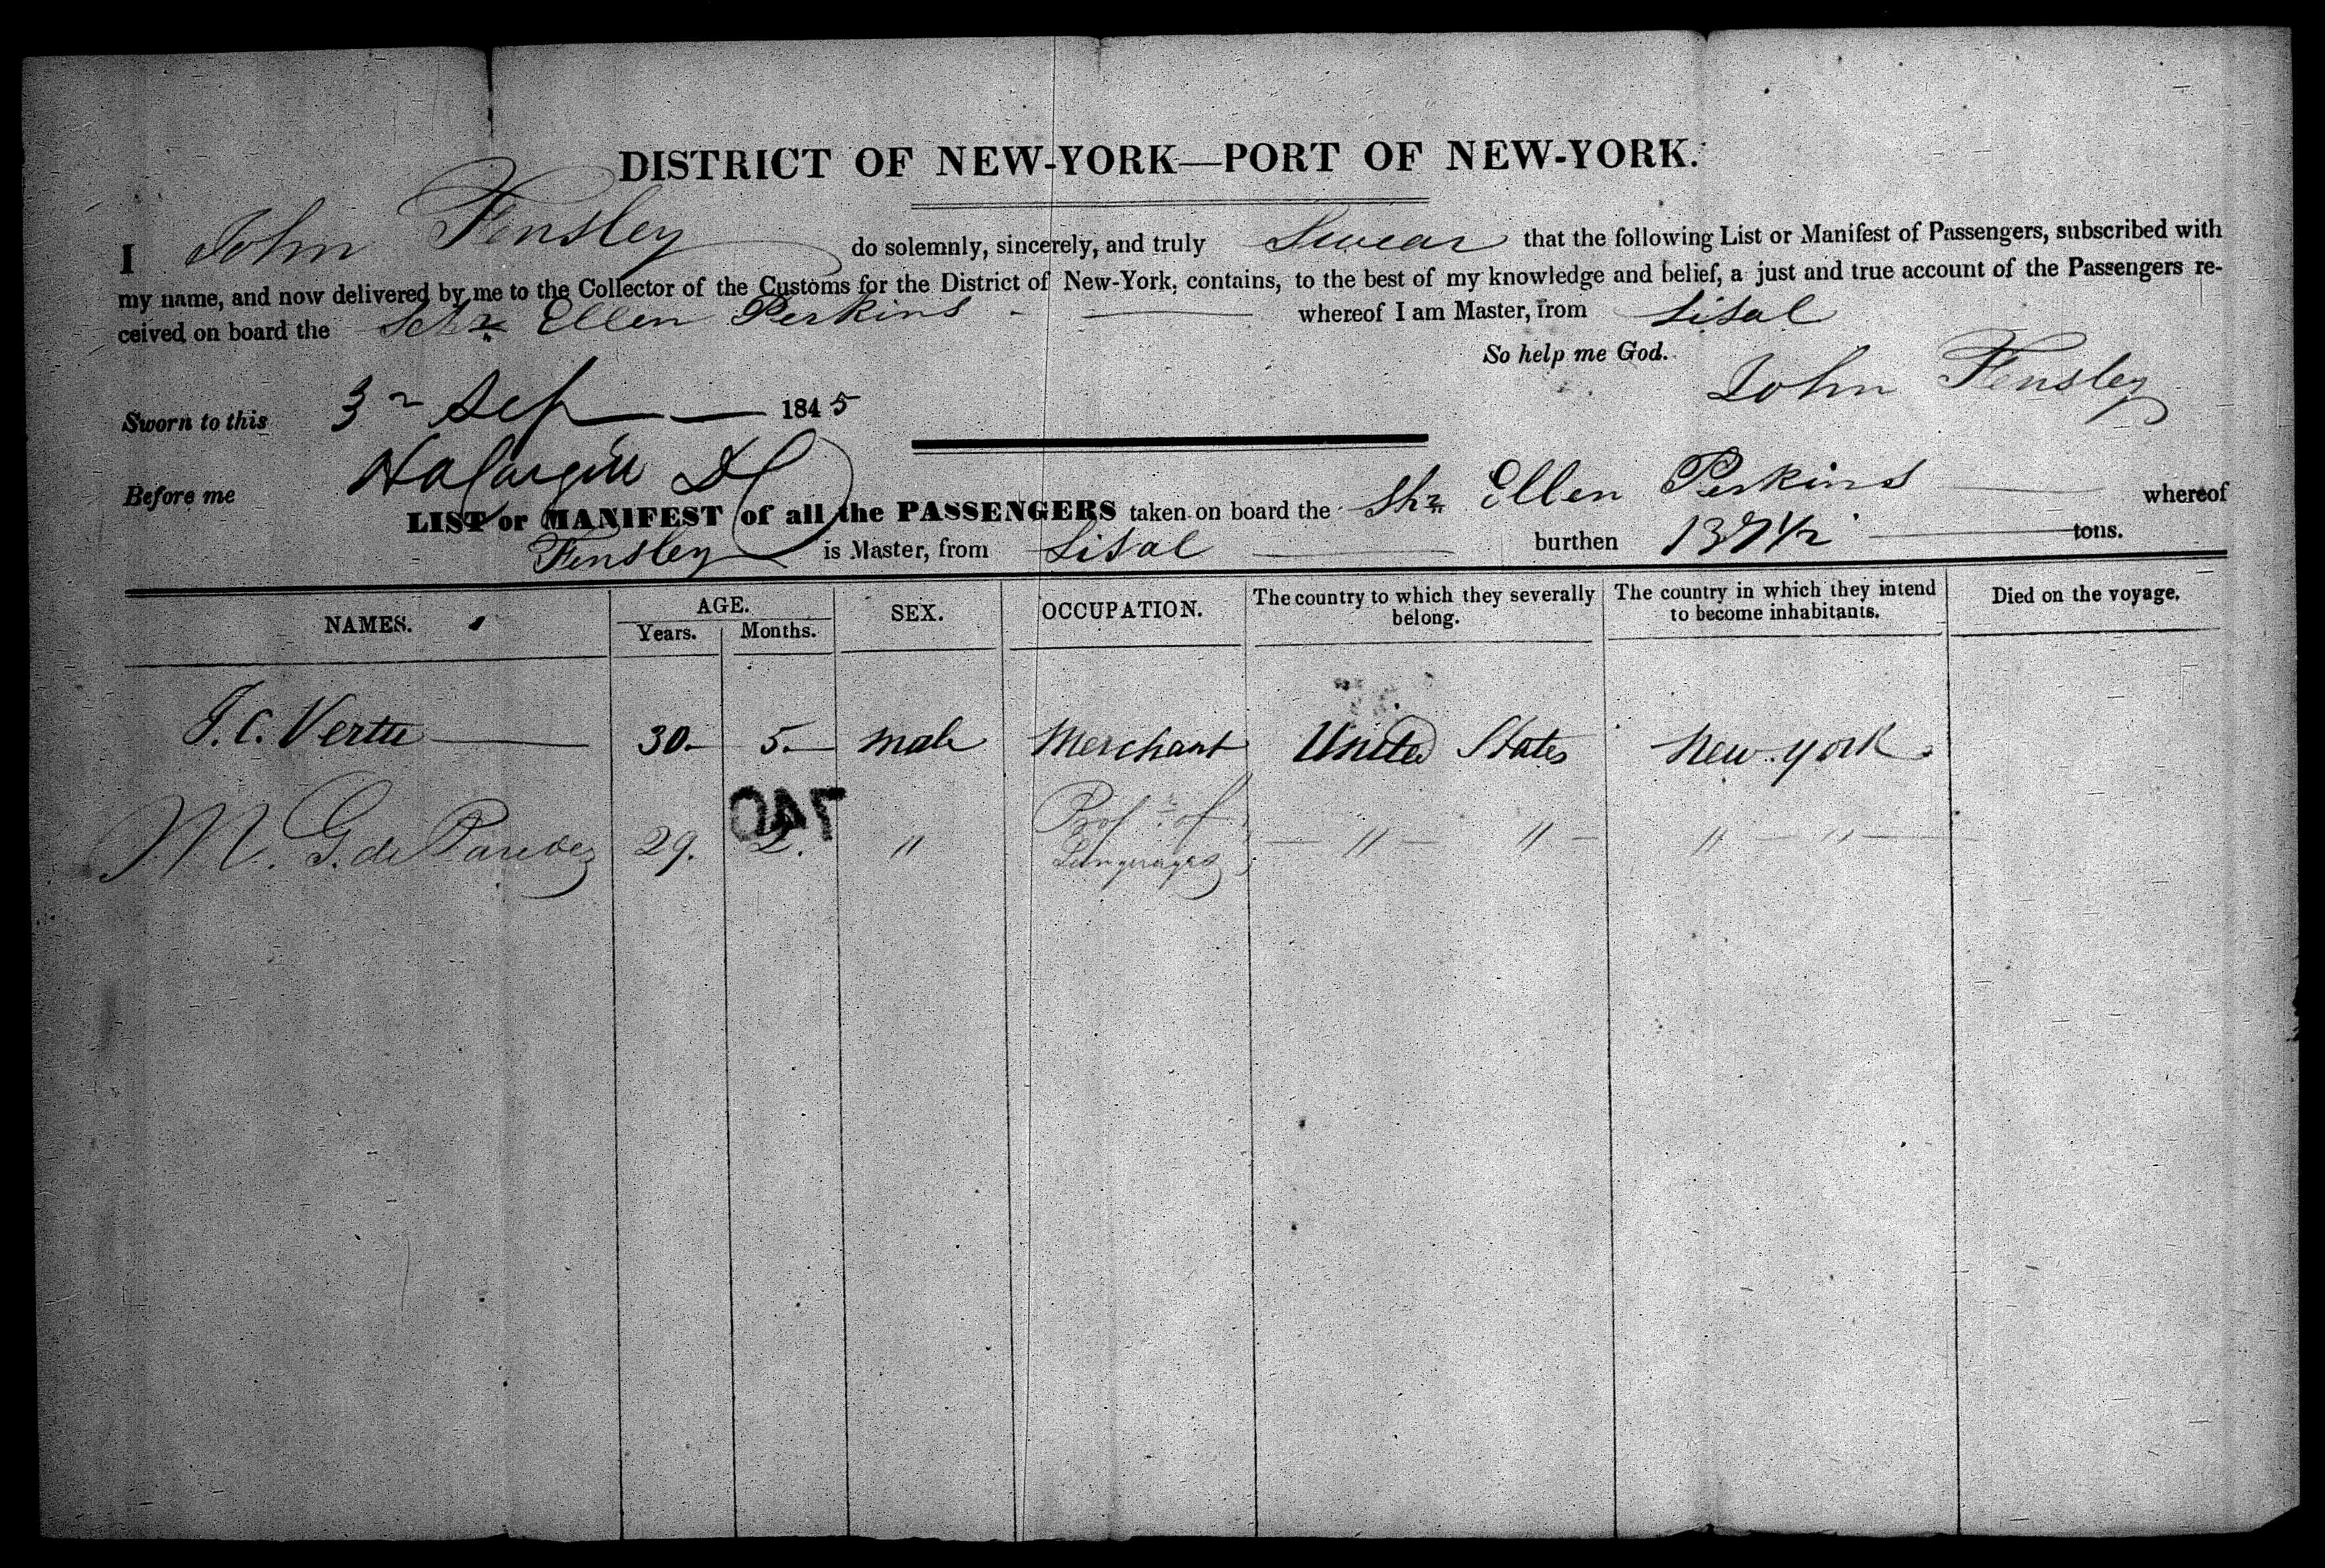 DISTRICT OF NEW-YORK—PORT OF NEW-YORK.
I John Tensley do solemnly, sincerely, and truly Swear that the following List or Manifest of Passengers, subscribed with
my name, and now delivered by me to the Collector of the Customs for the District of New-York, contains, to the best of my knowledge and belief, a just and true account of the Passengers re-
ceived on board the Schr Ellen Perkins whereof I am Master, from Sisal
So help me God.
John Tensley
Sworn to this 3 Sep 1845
Before me
LIST or MANIFEST of all the PASSENGERS taken on board the Shr Ellen Perkins whereof
Tensley is Master, from Sisal burthen tons.
NAMES. AGE. SEX. OCCUPATION. The country to which they severally belong. The country in which they intend to become inhabitants. Died on the voyage.
Years. Months.
J. C. Vertu 30. 5. male Merchant United States New-york
M. G. de Paredez 29. 2. " Profr of Languages " " " "
740